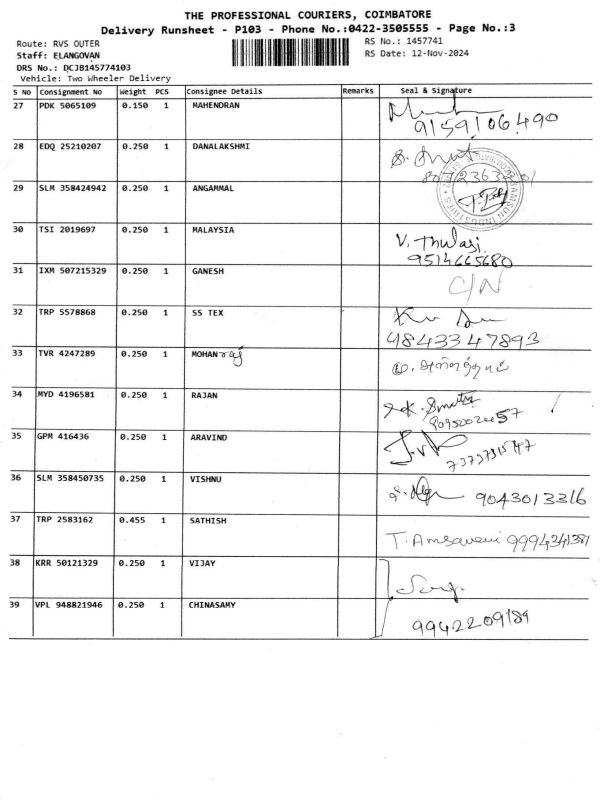 THE PROFESSIONAL COURIERS, COIMBATORE
Delivery Runsheet - P103 - Phone No.:0422-3505555 - Page No.:3
Route: RVS OUTER RS No.: 1457741
Staff: ELANGOVAN RS Date: 12-Nov-2024
DRS No.: DCJB145774103
Vehicle: Two Wheeler Delivery
S No Consignment No Weight PCS Consignee Details Remarks Seal & Signature
27 PDK 5065109 0.150 1 MAHENDRAN
9159106490
28 EDQ 25210207 0.250 1 DANALAKSHMI
29 SLM 358424942 0.250 1 ANGAMMAL
30 TSI 2019697 0.250 1 MALAYSIA V. Thulasi
9514665680
31 IXM 507215329 0.250 1 GANESH C/N
32 TRP 5578868 0.250 1 SS TEX
9843347893
33 TVR 4247289 0.250 1 MOHAN raj
34 MYD 4196581 0.250 1 RAJAN
35 GPM 416436 0.250 1 ARAVIND
36 SLM 358450735 0.250 1 VISHNU 9043013316
37 TRP 2583162 0.455 1 SATHISH T. Amsaveni 9994341381
38 KRR 50121329 0.250 1 VIJAY
39 VPL 948821946 0.250 1 CHINASAMY 9942209189